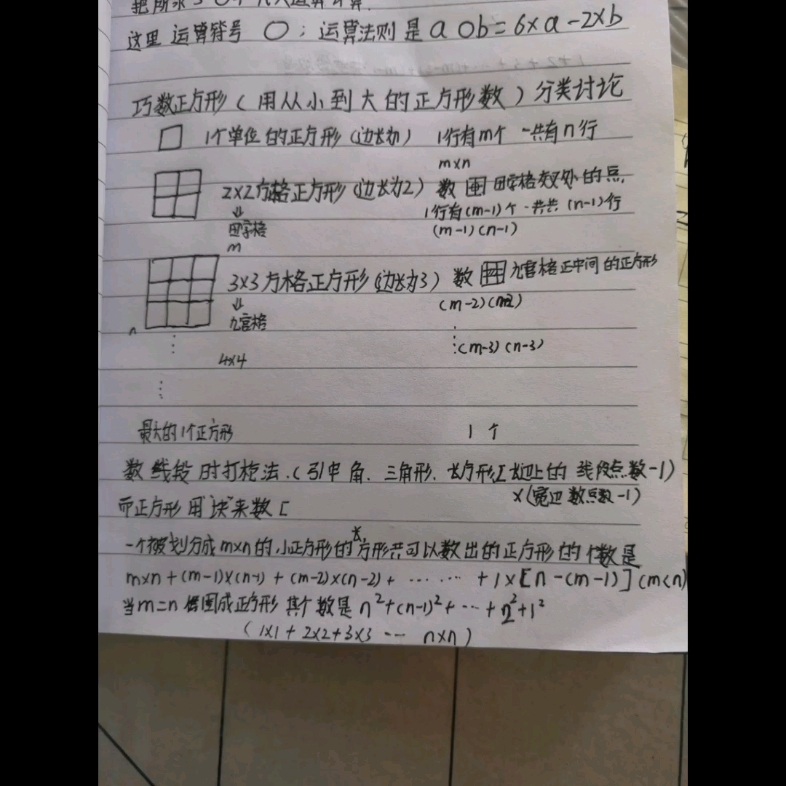 这里 运算符号 〇；运算法则是 a〇b=6×a-2×b
巧数正方形（用从小到大的正方形数）分类讨论
1个单位的正方形 1行有m个 一共有n行
m×n
2×2方格正方形（边长为2）数 田字格 处的点.
田字格
1行有(m-1)个 一共 (n-1)行
(m-1)(n-1)
m
3×3方格正方形（边长为3）数 九宫格正中间的正方形
九宫格
(m-2)
n
4×4
(m-3)(n-3)
最大的1个正方形 1个
数线段时打枪法.（引申角、三角形、长方形[长边上的线段点数-1)
×(宽边数点数-1)
而正方形用 来数[
一个被划分成m×n的小正方形的长方形共可以数出的正方形的个数是
m×n+(m-1)×(n-1)+(m-2)×(n-2)+ …… +1×[n-(m-1)](m<n)
当m=n 围成正方形 其个数是 n²+(n-1)²+…+2²+1²
(1×1+2×2+3×3 … n×n)